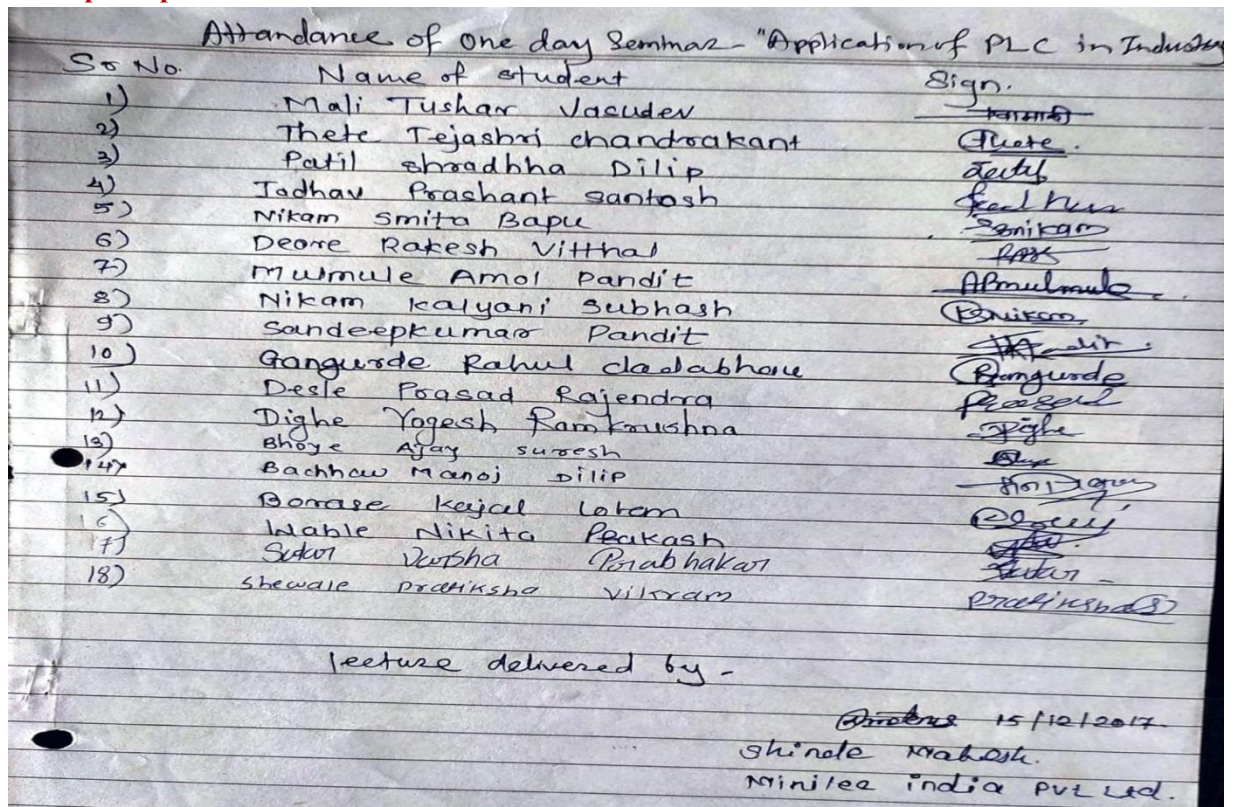 Attandance of one day Seminar - "Application of PLC in Industry
Sr No. Name of student Sign.
1) Mali Tushar Vasudev
2) Thete Tejashri chandrakant Thete.
3) Patil shradhha Dilip
4) Jadhav Prashant santosh
5) Nikam Smita Bapu Sbnikam
6) Deore Rakesh Vitthal
7) Mulmule Amol Pandit APmulmule
8) Nikam Kalyani Subhash
9) Sandeepkumar Pandit
10) Gangurde Rahul dadabhau Rangurde
11) Desle Prasad Rajendra Prasad
12) Dighe Yogesh Ramkrushna Dighe
13) Bhoye Ajay suresh
14) Bachhav Manoj Dilip
15) Borase Kajal
16) Wable Nikita Prakash
17) Sutar Varsha Prabhakar Sutar
18) shewale pratiksha vikram pratiksha S
lecture delivered by -
15/12/2017.
Shinde Mahesh.
Minilec india pvt Ltd.